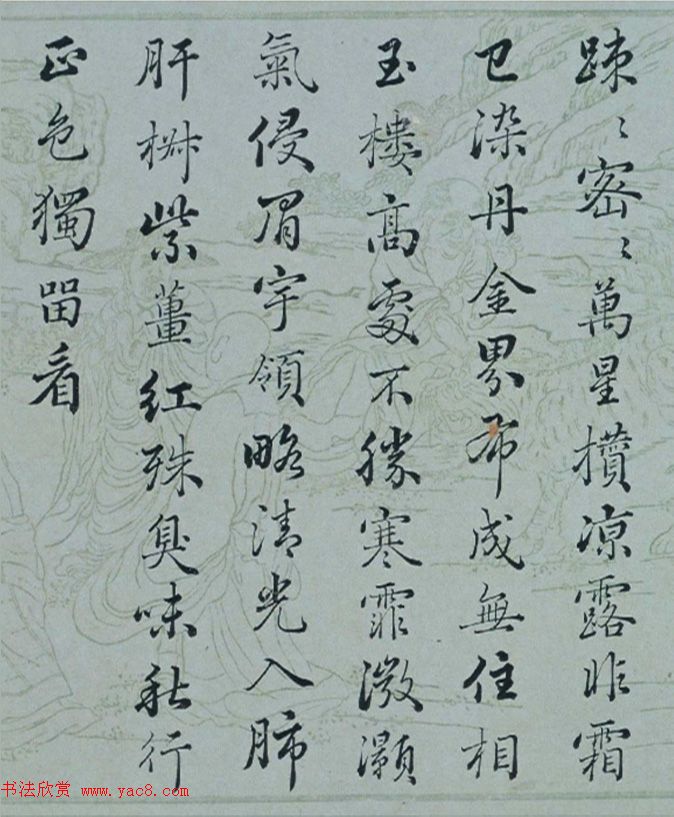 踈〻密〻萬星攢凉露昨霜
已染丹金界布成無住相
玉樓高處不勝寒霏微灝
氣侵眉宇領略清光入肺
肝椒紫薑紅殊臭味秋行
正色獨留看
书法欣赏 www.yac8.com